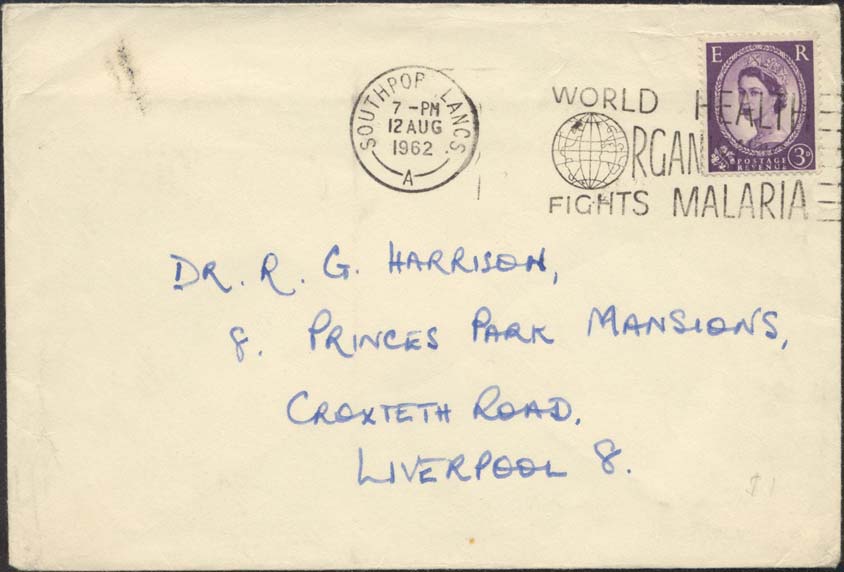 E R
SOUTHPOP LANCS.
7 -PM
12 AUG
1962
A
WORLD HEALTH
RGAN
FIGHTS MALARIA
POSTAGE
REVENUE
3D
DR. R. G. HARRISON,
8. PRINCES PARK MANSIONS,
CROXTETH ROAD,
LIVERPOOL 8.
$1